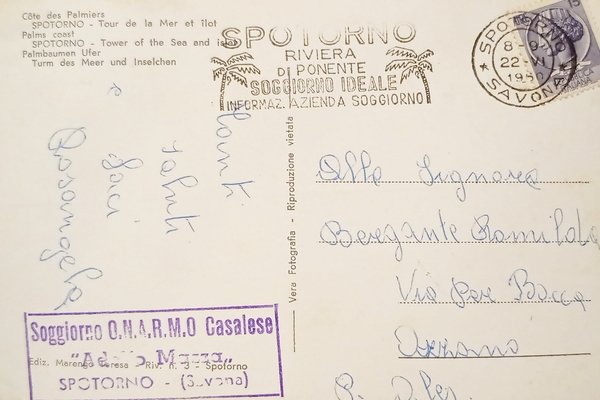 Côte des Palmiers
SPOTORNO - Tour de la Mer et îlot
Palms coast
SPOTORNO - Tower of the Sea and islet
Palmbaumen Ufer
Turm des Meer und Inselchen
SPOTORNO
RIVIERA
DI PONENTE
SOGGIORNO IDEALE
INFORMAZ. AZIENDA SOGGIORNO
SPOTORNO
8-9
22 VI
SAVONA
15
Tanti
saluti
e
baci
Rosangela
Vera Fotografia - Riproduzione vietata
Alla Signora
Bergante Romilda
Via per Bocca
Soggiorno O.N.A.R.M.O Casalese
Ediz. Marengo Teresa - Riv. n. 3 - Spotorno
SPOTORNO - (Savona)